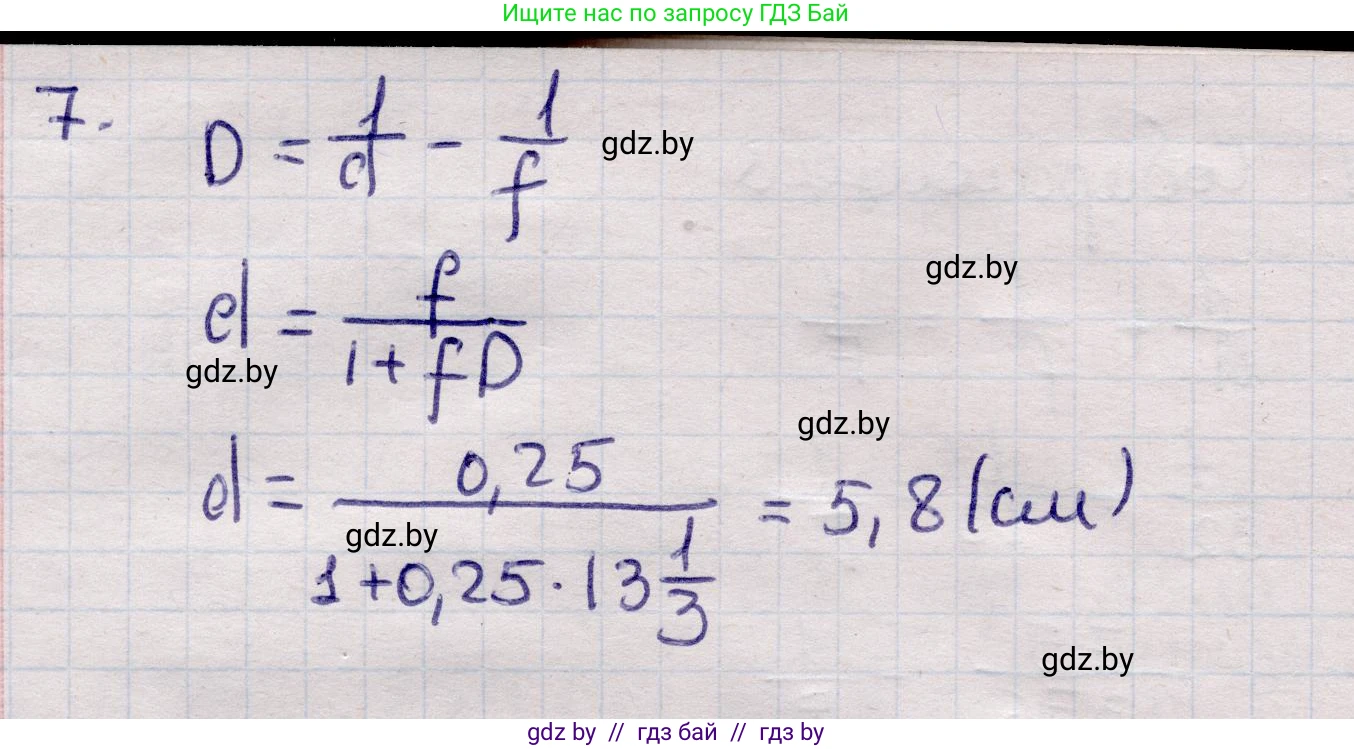 Ищите нас по запросу ГДЗ Бай
7. D = 1/d - 1/f
gdz.by
gdz.by
d = f/(1 + fD)
gdz.by
gdz.by
d = 0,25/(1 + 0,25 · 13 1/3) = 5,8 (см)
gdz.by
gdz.by
gdz by // гдз бай // гдз by